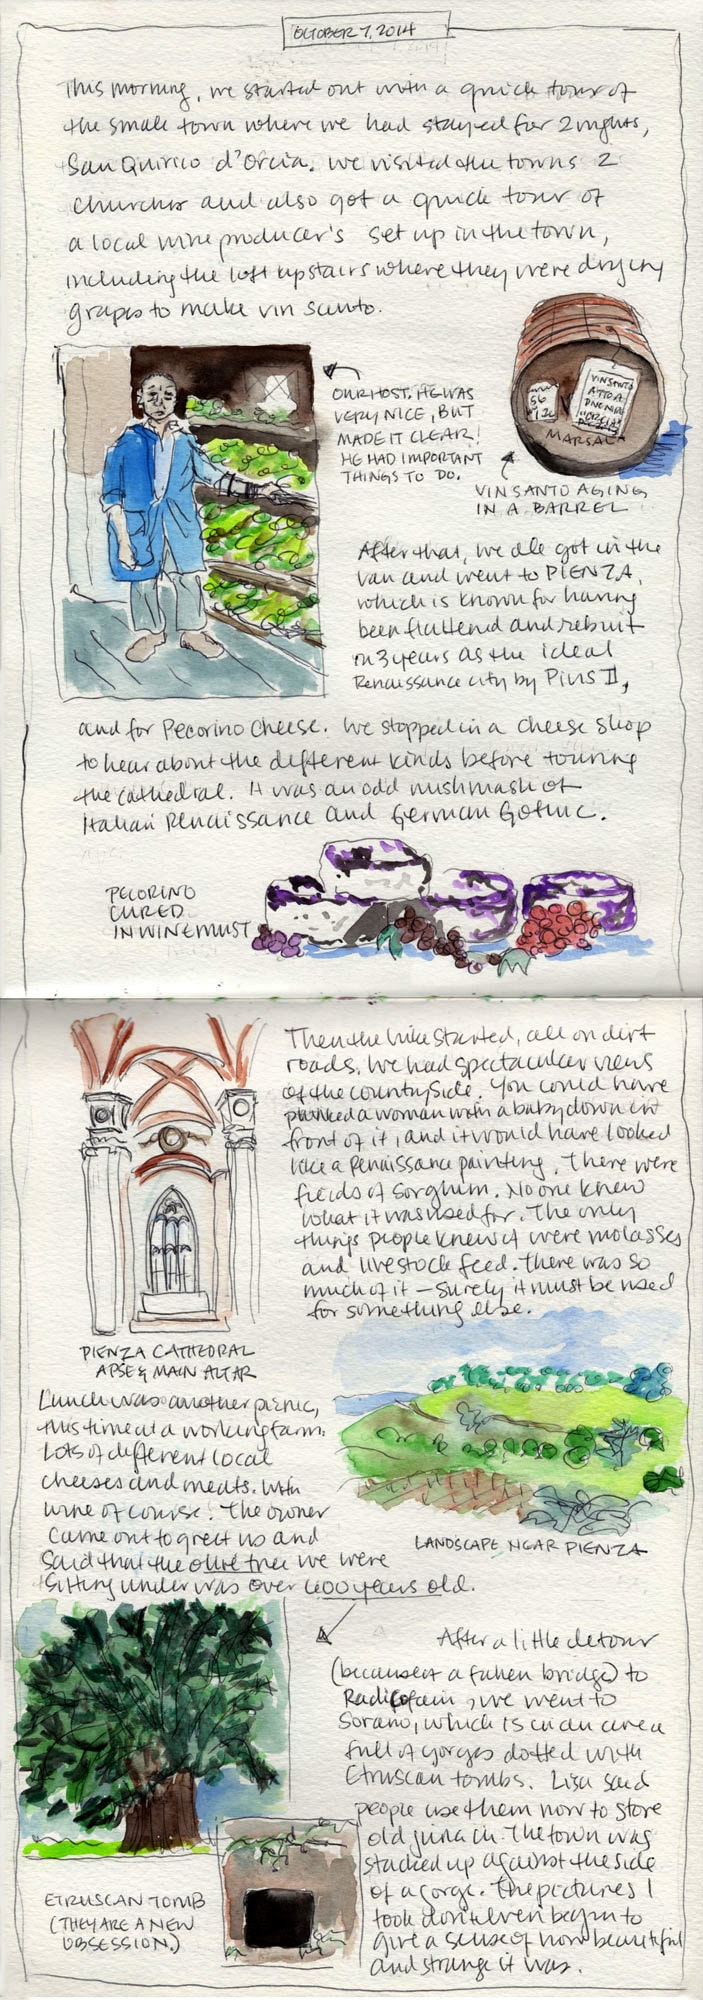 OCTOBER 7, 2014
This morning, we started out with a quick tour of
the small town where we had stayed for 2 nights,
San Quirico d'Orcia. We visited the towns 2
churches and also got a quick tour of
a local wine producer's set up in the town,
including the loft upstairs where they were drying
grapes to make vin santo.
OUR HOST. HE WAS
VERY NICE, BUT
MADE IT CLEAR!
HE HAD IMPORTANT
THINGS TO DO.
56
VINSANTO
MARSAL
VIN SANTO AGING
IN A BARREL
After that, we all got in the
van and went to PIENZA,
which is known for having
been flattened and rebuilt
in 3 years as the ideal
Renaissance city by Pius II,
and for Pecorino Cheese. We stopped in a cheese shop
to hear about the different kinds before touring
the cathedral. It was an odd mishmash of
Italian Renaissance and German Gothic.
PECORINO
CURED
IN WINE MUST
Then the hike started, all on dirt
roads. We had spectacular views
of the countryside. You could have
plunked a woman with a baby down in
front of it, and it would have looked
like a Renaissance painting. There were
fields of sorghum. No one knew
what it was used for. The only
things people knew of were molasses
and livestock feed. There was so
much of it – surely it must be used
for something else.
PIENZA CATHEDRAL
APSE & MAIN ALTAR
Lunch was another picnic,
this time at a working farm.
Lots of different local
cheeses and meats. With
wine of course. The owner
came out to greet us and
said that the olive tree we were
sitting under was over 600 years old.
LANDSCAPE NEAR PIENZA
After a little detour
(because of a fallen bridge) to
we went to
Sorano, which is in an area
full of gorges dotted with
Etruscan tombs. Lisa said
people use them now to store
old junk in. The town was
stacked up against the side
of a gorge. The pictures I
took don't even begin to
give a sense of how beautiful
and strange it was.
ETRUSCAN TOMB
(THEY ARE A NEW
OBSESSION.)